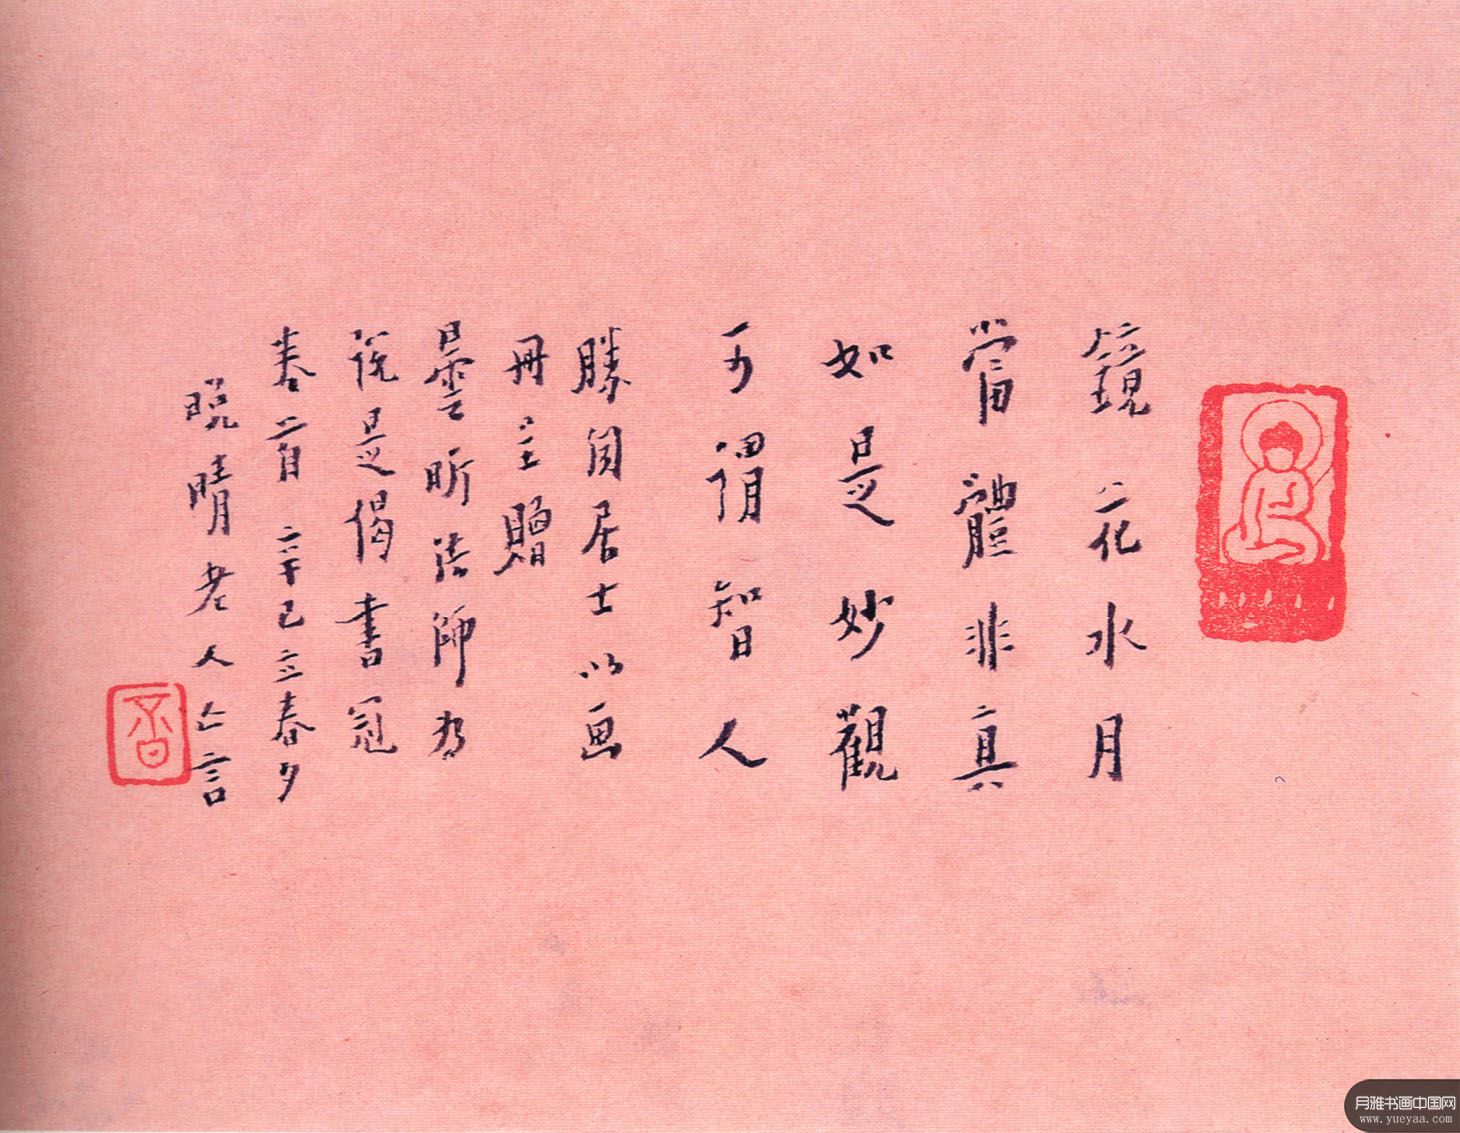 鏡花水月
當體非真
如是妙觀
可謂智人
勝聞居士以画
冊主贈
曇昕法師為
說是偈書冠
卷首 辛巳立春夕
晚晴老人亡言
月雅书画中国网
www.yueyaa.com